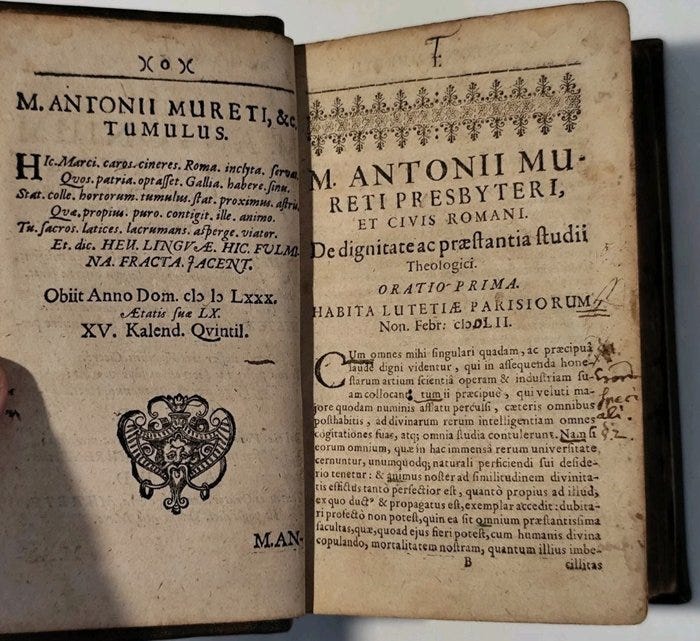 )( o )(
M. ANTONII MURETI, &c.
TUMULUS.
HIc. Marci. caros. cineres. Roma. inclyta. servat
Quos. patria. optasset. Gallia. habere. sinu.
Stat. colle. hortorum. tumulus. stat. proximus. astris
Quæ. propius. puro. contigit. ille. animo.
Tu. sacros. latices. lacrumans. asperge. viator.
Et. dic. HEU. LINGVÆ. HIC. FULMI-
NA. FRACTA. JACENT.
Obiit Anno Dom. cIↄ Iↄ Lxxx.
Ætatis suæ LX.
XV. Kalend. Qvintil.
M. AN-
M. ANTONII MU-
RETI PRESBYTERI,
ET CIVIS ROMANI.
De dignitate ac præstantia studii
Theologici.
ORATIO PRIMA.
HABITA LUTETIÆ PARISIORUM
Non. Febr: cIↄIↄLII.
CUm omnes mihi singulari quadam, ac præcipuâ
laude digni videntur, qui in assequenda hone-
starum artium scientiâ operam & industriam su-
am collocant: tum ii præcipuè, qui veluti ma-
jore quodam numinis afflatu perculsi, cæteris omnibus
posthabitis, ad divinarum rerum intelligentiam omnes
cogitationes suas, atq; omnia studia contulerunt. Nam si
eorum omnium, quæ in hac immensâ rerum universitate
cernuntur, unumquodq; naturali perficiendi sui deside-
rio tenetur: & animus noster ad similitudinem divinita-
tis effictus tantò perfectior est, quantò propius ad illud,
ex quo duct⁹ & propagatus est, exemplar accedit: dubita-
ri profectò non potest, quin ea sit omnium præstantissima
facultas, quæ, quoad ejus fieri potest, cum humanis divina
copulando, mortalitatem nostram, quantum illius imbe-
B cillitas